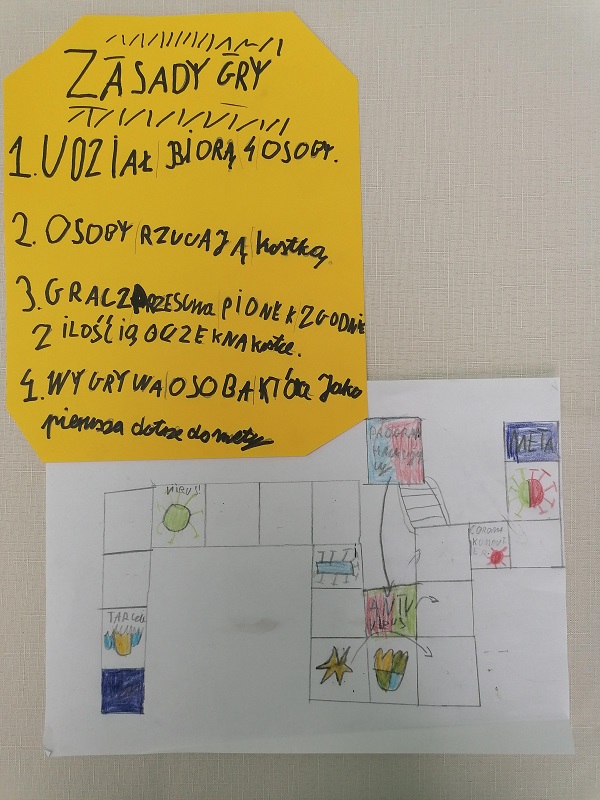 ZASADY GRY
1. UDZIAŁ BIORĄ 4 OSOBY.
2. OSOBY RZUCAJĄ kostką
3. GRACZ PRZESUWA PIONEK ZGODNIE
Z ILOŚCIĄ OCZEK NA kostce.
4. WYGRYWA OSOBA KTÓRA Jako
pierwsza dotrze do mety
META
wirus!
CORONA
TARCZE
ANTY
wirus